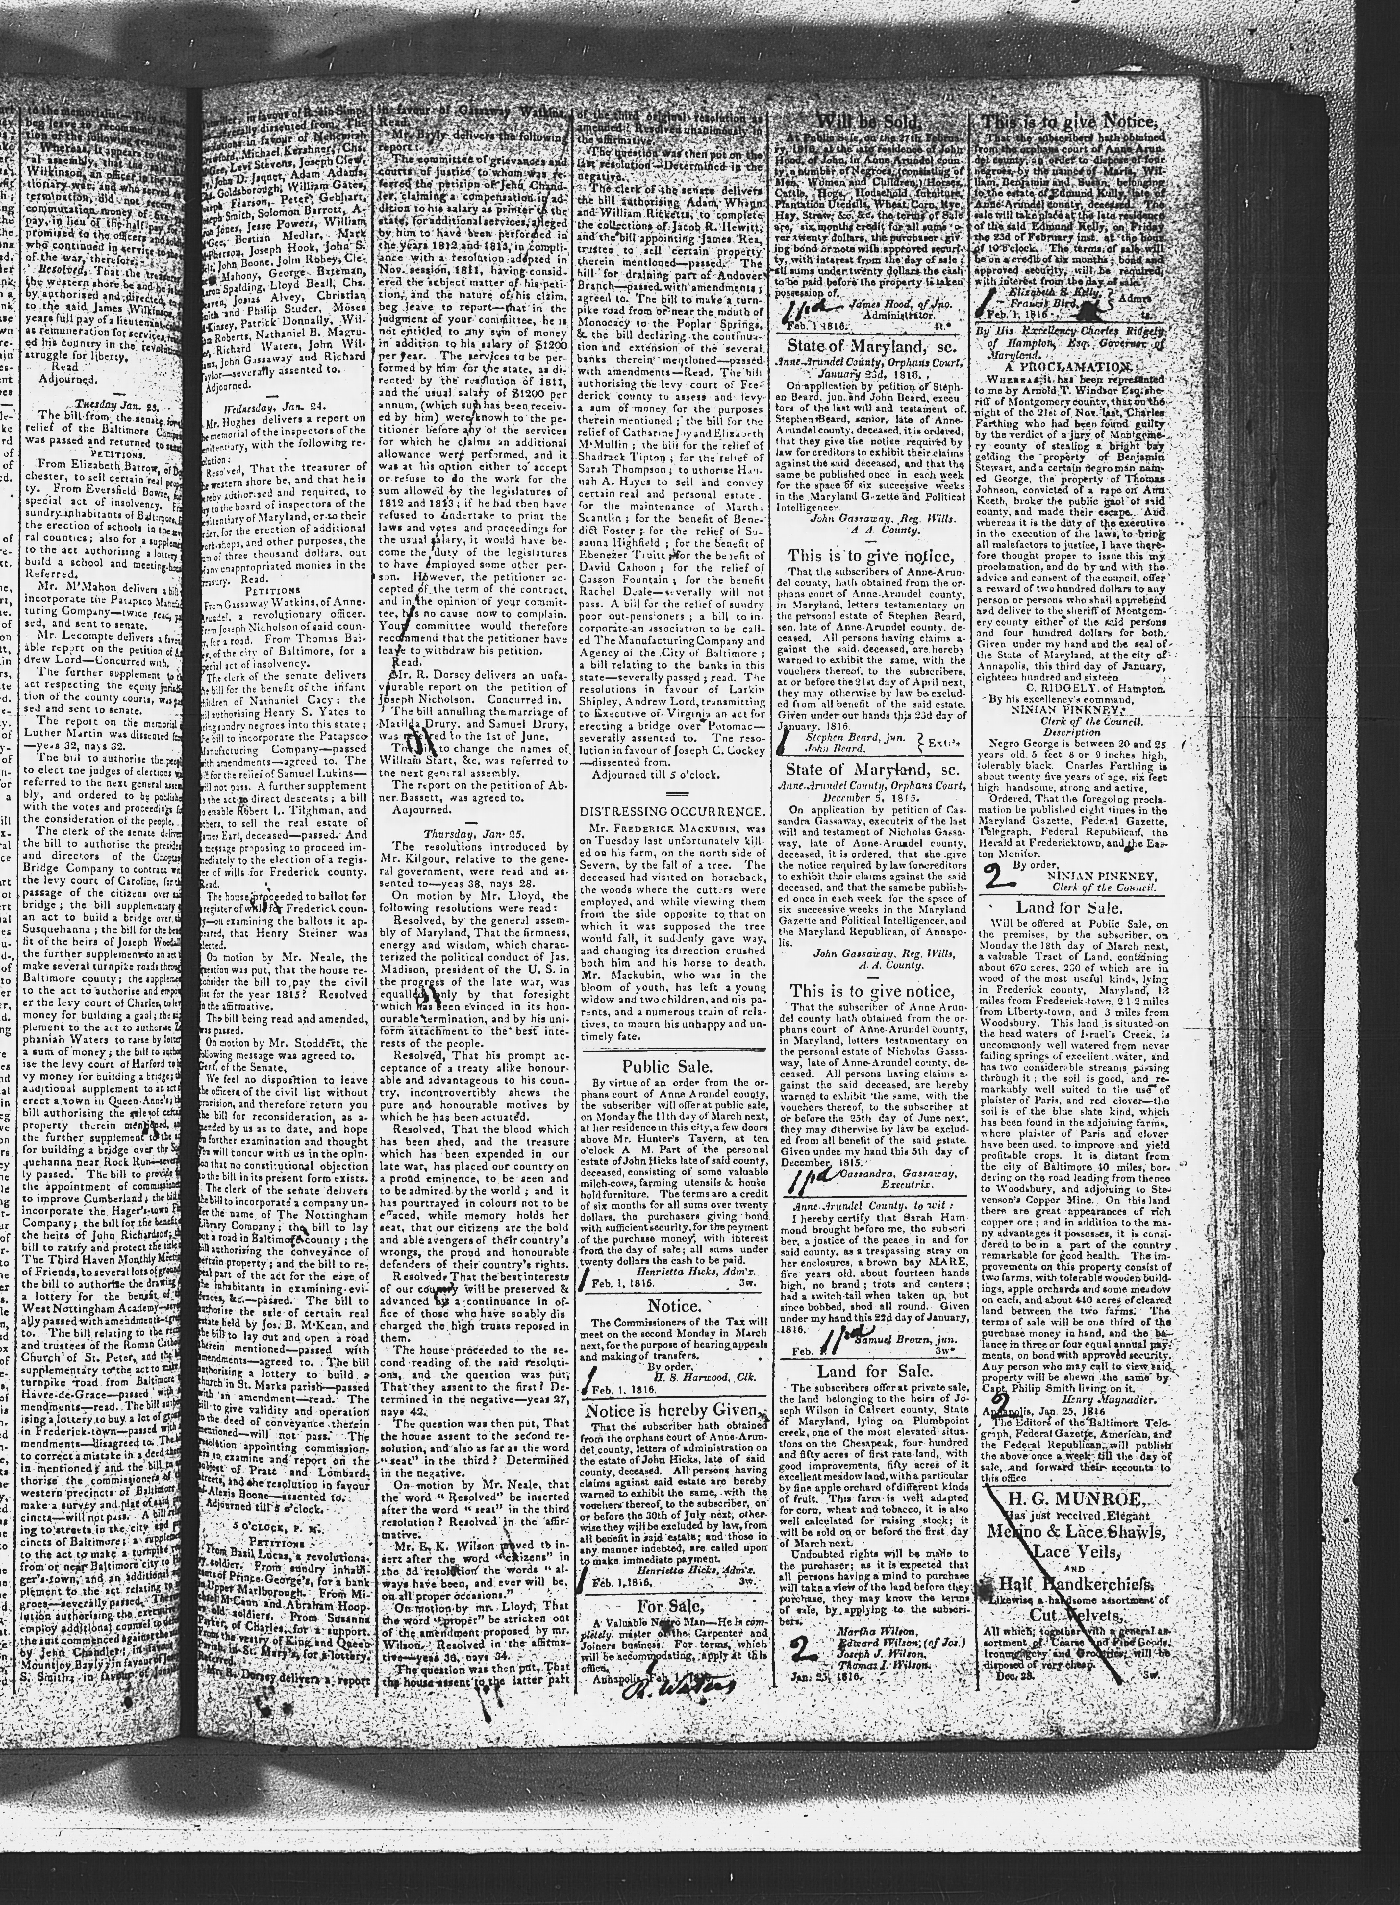 to the memorialist—They
beg leave to recommend the
tion of the following
Whereas, it appears to
al assembly, that
Wilkinson, an officer in the
tionary war, and who served
termination, did not receive
commutation money of five
pay, in lieu of the half-pay, for
promised to the officers and
who continued in service to the
of the war, therefore,
Resolved, That the treasurer
the western shore be and he
by authorised and directed
to the said James Wilkinson,
years full pay of a lieutenant
as remuneration for services
ed his country in the revolutionary
struggle for liberty.
Read
Adjourned.
Tuesday Jan. 23.
The bill from the senate, for
relief of the Baltimore
was passed and returned to
PETITIONS.
From Elizabeth Barrow, of Dor
chester, to sell certain real
ty. From Eversfield Bowie,
special act of insolvency.
sundry inhabitants of Baltimore,
the erection of schools in
ral counties; also for a supplement
to the act authorising a lottery
build a school and meeting-house
Referred.
Mr. M'Mahon delivers a bill
incorporate the Patapsco Manufac
turing Company—twice read,
sed, and sent to senate.
Mr. Lecompte delivers a favor
able report on the petition of An
drew Lord—Concurred with.
The further supplement to
act respecting the equity
tion of the county courts, was pas
sed and sent to senate.
The report on the memorial
Luther Martin was dissented
—yeas 32, nays 32.
The bill to authorise the people
to elect the judges of elections
referred to the next general assem
bly, and ordered to be published
with the votes and proceedings for
the consideration of the people.
The clerk of the senate delivers
the bill to authorise the president
and directors of the
Bridge Company to contract with
the levy court of Caroline, for the
passage of the citizens over
bridge; the bill supplementary
an act to build a bridge over
Susquehanna; the bill for the
fit of the heirs of Joseph
the further supplement to an act
make several turnpike roads through
Baltimore county; the supplement
to the act to authorise and
er the levy court of Charles, to
money for building a gaol; the
plement to the act to authorise
phaniah Waters to raise by lottery
a sum of money; the bill to
ise the levy court of Harford to
vy money for building a bridge;
additional supplement to an act
erect a town in Queen-Anne's;
bill authorising the sale of certain
property therein mentioned,
the further supplement to the
for building a bridge over the Sus
quehanna near Rock Run—several
ly passed. The bill to provide
the appointment of commissioners
to improve Cumberland; the bill
incorporate the Hager's-town
Company; the bill for the benefit
of the heirs of John Richardson;
bill to ratify and protect the
The Third Haven Monthly Meeting
of Friends, to several lots of ground
the bill to authorise the drawing
a lottery for the benefit of
West Nottingham Academy—
ally passed with amendments—
to. The bill relating to the
and trustees of the Roman Catholic
Church of St. Peter, and the
supplementary to the act to make
turnpike road from Baltimore
Havre-de-Grace—passed with
mendments—read. The bill
ising a lottery to buy a lot of ground
in Frederick-town—passed with
mendments—disagreed to.
to correct a mistake in a deed
in mentioned; and the bill
thorise the commissioners of
western precincts of Baltimore
make a survey and plat of said
cincts—will not pass. A bill
ing to streets in the city and
cincts of Baltimore; a
to the act to make a turnpike
from or near Baltimore city to Ha
ger's-town; and an additional
plement to the act relating to
groes—severally passed.
lution authorising the
employ additional counsel
the suit commenced against
by John Chandler;
Mountjoy Bayly; in favour of
S. Smith; in favour of
in favour of
severally dissented from. The
resolutions in favour of Nehemiah
Michael Kershner, Chs.
Levi Stevens, Joseph Clew
John D. Jaquet, Adam Adams,
C. Goldsborough, William Gates,
Joseph Flarson, Peter Gebhart,
Joseph Smith, Solomon Barrott, A
Jones, Jesse Powers, William
Gee, Bostian Medlar, Mark
M'Pherson, Joseph Hook, John S.
John Boone, John Robey, Cle
Mahony, George Bateman,
Spalding, Lloyd Beall, Chs.
Josias Alvey, Christian
Philip Studer, Moses
Kinsey, Patrick Donnally, Wil
Roberts, Nathaniel B. Magru
Richard Waters, John Wil
John Gassaway and Richard
Taylor—severally assented to.
Adjourned.
Wednesday, Jan. 24.
Mr. Hughes delivers a report on
the memorial of the inspectors of the
penitentiary, with the following re
solution:
Resolved, That the treasurer of
the western shore be, and that he is
hereby authorised and required, to
pay to the board of inspectors of the
penitentiary of Maryland, or to their
order, for the erection of additional
work-shops, and other purposes, the
sum of three thousand dollars, out
of any unappropriated monies in the
treasury. Read.
PETITIONS
From Gassaway Watkins, of Anne
Arundel, a revolutionary officer.
From Joseph Nicholson of said coun
ty, for a road. From Thomas Bai
ley, of the city of Baltimore, for a
special act of insolvency.
The clerk of the senate delivers
the bill for the benefit of the infant
children of Nathaniel Cacy; the
bill authorising Henry S. Yates to
bring sundry negroes into this state;
the bill to incorporate the Patapsco
Manufacturing Company—passed
with amendments—agreed to. The
bill for the relief of Samuel Lukins—
will not pass. A further supplement
to the act to direct descents; a bill
to enable Robert L. Tilghman, and
others, to sell the real estate of
James Earl, deceased—passed. And
a message proposing to proceed im
mediately to the election of a regis
ter of wills for Frederick county.
Read.
The house proceeded to ballot for
a register of wills for Frederick coun
ty—on examining the ballots it ap
peared, that Henry Steiner was
elected.
On motion by Mr. Neale, the
question was put, that the house re
consider the bill to pay the civil
list for the year 1815? Resolved
in the affirmative.
The bill being read and amended,
was passed.
On motion by Mr. Stoddert, the
following message was agreed to.
Gent. of the Senate,
We feel no disposition to leave
the officers of the civil list without
provision, and therefore return you
the bill for reconsideration, as a
mended by us as to date, and hope
on further examination and thought
you will concur with us in the opin
ion that no constitutional objection
to the bill in its present form exists.
The clerk of the senate delivers
the bill to incorporate a company un
der the name of The Nottingham
Library Company; the bill to lay
out a road in Baltimore county; the
bill authorising the conveyance of
certain property; and the bill to re
peal part of the act for the ease of
the inhabitants in examining evi
dences, &c.—passed. The bill to
authorise the sale of certain real
estate held by Jos. B. M'Kean, and
the bill to lay out and open a road
therein mentioned—passed with
amendments—agreed to. The bill
authorising a lottery to build a
church in St. Marks parish—passed
with an amendment—read. The
bill to give validity and operation
to the deed of conveyance therein
mentioned—will not pass. The
resolution appointing commission
ers to examine and report on the
subject of Pratt and Lombard
streets, and the resolution in favour
of Alexis Boone—assented to.
Adjourned till 5 o'clock.
5 O'CLOCK, P. M.
PETITIONS
From Basil Lucas, a revolutiona
ry soldier. From sundry inhabi
tants of Prince-George's, for a bank
in Upper Marlborough. From Mi
chael M'Cann and Abraham Hoop
er, old soldiers. From Susanna
of Charles, for a support.
From the vestry of King and Queen
Parish, in St. Mary's, for a lottery.
Mr. R. Dorsey delivers a report
in favour of Gassaway Watkins.
Read.
Mr. Bayly delivers the following
report:
The committee of grievances and
courts of justice to whom was re
ferred the petition of John Chand
ler, claiming a compensation in ad
dition to his salary as printer to the
state, for additional services, alleged
by him to have been performed in
the years 1812 and 1813, in compli
ance with a resolution adopted in
Nov. session, 1811, having consid
ered the subject matter of his peti
tion, and the nature of his claim,
beg leave to report—that in the
judgment of your committee, he is
not entitled to any sum of money
in addition to his salary of $1200
per year. The services to be per
formed by him for the state, as di
rected by the resolution of 1811,
and the usual salary of $1200 per
annum, (which has been receiv
ed by him) were known to the pe
titioner before any of the services
for which he claims an additional
allowance were performed, and it
was at his option either to accept
or refuse to do the work for the
sum allowed by the legislatures of
1812 and 1813; if he had then have
refused to undertake to print the
laws and votes and proceedings for
the usual salary, it would have be
come the duty of the legislatures
to have employed some other per
son. However, the petitioner ac
cepted of the term of the contract,
and in the opinion of your commit
tee, has no cause now to complain.
Your committee would therefore
recommend that the petitioner have
leave to withdraw his petition.
Read.
Mr. R. Dorsey delivers an unfa
vourable report on the petition of
Joseph Nicholson. Concurred in.
The bill annulling the marriage of
Matilda Drury, and Samuel Drury,
was referred to the 1st of June.
The bill to change the names of
William Start, &c. was referred to
the next general assembly.
The report on the petition of Ab
ner Bassett, was agreed to.
Adjourned.
Thursday, Jan. 25.
The resolutions introduced by
Mr. Kilgour, relative to the gene
ral government, were read and as
sented to—yeas 38, nays 28.
On motion by Mr. Lloyd, the
following resolutions were read:
Resolved, by the general assem
bly of Maryland, That the firmness,
energy and wisdom, which charac
terized the political conduct of Jas.
Madison, president of the U. S. in
the progress of the late war, was
equalled only by that foresight
which has been evinced in its hon
ourable termination, and by his uni
form attachment to the best inte
rests of the people.
Resolved, That his prompt ac
ceptance of a treaty alike honour
able and advantageous to his coun
try, incontrovertibly shews the
pure and honourable motives by
which he has been actuated.
Resolved, That the blood which
has been shed, and the treasure
which has been expended in our
late war, has placed our country on
a proud eminence, to be seen and
to be admired by the world; and it
has pourtrayed in colours not to be
effaced, while memory holds her
seat, that our citizens are the bold
and able avengers of their country's
wrongs, the proud and honourable
defenders of their country's rights.
Resolved, That the best interests
of our county will be preserved &
advanced by a continuance in of
fice of those who have so ably dis
charged the high trusts reposed in
them.
The house proceeded to the se
cond reading of the said resoluti
ons, and the question was put,
That they assent to the first? De
termined in the negative—yeas 27,
nays 42.
The question was then put, That
the house assent to the second re
solution, and also as far as the word
"seat" in the third? Determined
in the negative.
On motion by Mr. Neale, that
the word "Resolved" be inserted
after the word "seat" in the third
resolution? Resolved in the affir
mative.
Mr. E. K. Wilson moved to in
sert after the word "citizens" in
the 3d resolution the words "al
ways have been, and ever will be,
on all proper occasions."
On motion by mr. Lloyd, That
the word "proper" be stricken out
of the amendment proposed by mr.
Wilson. Resolved in the affirma
tive—yeas 36, nays 34.
The question was then put, That
the house assent to the latter part
of the third original resolution as
amended? Resolved unanimously in
the affirmative.
The question was then put on the
last resolution—Determined in the
negative.
The clerk of the senate delivers
the bill authorising Adam, Whann
and William Ricketts, to complete
the collections of Jacob R. Hewitt,
and the bill appointing James Rea,
trustee to sell certain property
therein mentioned—passed. The
bill for draining part of Andover
Branch—passed with amendments;
agreed to. The bill to make a turn
pike road from or near the mouth of
Monocacy to the Poplar Springs,
& the bill declaring the continua
tion and extension of the several
banks therein mentioned—passed
with amendments—Read. The bill
authorising the levy court of Fre
derick county to assess and levy
a sum of money for the purposes
therein mentioned; the bill for the
relief of Catharine Joy and Elizabeth
M'Mullin; the bill for the relief of
Shadrack Tipton; for the relief of
Sarah Thompson; to uthorise Han
nah A. Hayes to sell and convey
certain real and personal estate.
for the maintenance of Marth
Scantlin; for the benefit of Bene
dict Foster; for the relief of Su
sanna Highfield; for the benefit of
Ebenezer Truitt; for the benefit of
David Cahoon; for the relief of
Casson Fountain; for the benefit
Rachel Deale—severally will not
pass. A bill for the relief of sundry
poor out-pensioners; a bill to in
corporate an association to be call
ed The Manufacturing Company and
Agency of the City of Baltimore;
a bill relating to the banks in this
state—severally passed; read. The
resolutions in favour of Larkin
Shipley, Andrew Lord, transmitting
to Executive of Virginia an act for
erecting a bridge over Potomac—
severally assented to. The reso
lution in favour of Joseph C. Cockey
—dissented from.
Adjourned till 5 o'clock.
DISTRESSING OCCURRENCE.
Mr. FREDERICK MACKUBIN, was
on Tuesday last unfortunately kill
ed on his farm, on the north side of
Severn, by the fall of a tree. The
deceased had visited on horseback,
the woods where the cutters were
employed, and while viewing them
from the side opposite to that on
which it was supposed the tree
would fall, it suddenly gave way,
and changing its direction crushed
both him and his horse to death.
Mr. Mackubin, who was in the
bloom of youth, has left a young
widow and two children, and his pa
rents, and a numerous train of rela
tives, to mourn his unhappy and un
timely fate.
Public Sale.
By virtue of an order from the or
phans court of Anne Arundel county,
the subscriber will offer at public sale,
on Monday the 11th day of March next,
at her residence in this city, a few doors
above Mr. Hunter's Tavern, at ten
o'clock A M. Part of the personal
estate of John Hicks late of said county,
deceased, consisting of some valuable
milch-cows, farming utensils & house
hold furniture. The terms are a credit
of six months for all sums over twenty
dollars, the purchasers giving bond
with sufficient security, for the payment
of the purchase money, with interest
from the day of sale; all sums under
twenty dollars the cash to be paid.
Henrietta Hicks, Adm'x.
Feb. 1, 1816. 3w.
Notice.
The Commissioners of the Tax will
meet on the second Monday in March
next, for the purpose of hearing appeals
and making of transfers.
By order,
H. S. Harwood, Clk.
Feb. 1, 1816.
Notice is hereby Given,
That the subscriber hath obtained
from the orphans court of Anne-Arun
del county, letters of administration on
the estate of John Hicks, late of said
county, deceased. All persons having
claims against said estate are hereby
warned to exhibit the same, with the
vouchers thereof, to the subscriber, on
or before the 30th of July next, other
wise they will be excluded by law, from
all benefit in said estate; and those in
any manner indebted, are called upon
to make immediate payment.
Henrietta Hicks, Adm'x.
Feb. 1, 1816. 3w.
For Sale,
A Valuable Negro Man—He is com
pletely master of the Carpenter and
Joiners business. For terms, which
will be accommodating, apply at this
office.
Annapolis, Feb. 1, 1816.
R. Waters
Will be Sold,
At Public Sale, on the 27th Februa
ry, 1816, at the late residence of John
Hood, of John, in Anne-Arundel coun
ty, a number of Negroes, (consisting of
Men, Women and Children,) Horses,
Cattle, Hogs, Household furniture,
Plantation Utensils, Wheat, Corn, Rye,
Hay, Straw, &c. &c. the terms of Sale
are, six months credit, for all sums o
ver twenty dollars, the purchaser giv
ing bond or note with approved secur
ity, with interest from the day of sale;
all sums under twenty dollars the cash
to be paid before the property is taken
possession of.
James Hood, of Jno.
Administrator.
Feb. 1 1816. tt.*
State of Maryland, sc.
Anne-Arundel County, Orphans Court,
January 23d, 1816.
On application by petition of Steph-
an Beard, jun. and John Beard, execu
tors of the last will and testament of
Stephen Beard, senior, late of Anne-
Arundel county, deceased, it is ordered,
that they give the notice required by
law for creditors to exhibit their claims
against the said deceased, and that the
same be published once in each week
for the space of six successive weeks
in the Maryland Gazette and Political
Intelligencer
John Gassaway, Reg. Wills.
A A. County.
This is to give notice,
That the subscribers of Anne-Arun
del county, hath obtained from the or
phans court of Anne-Arundel county,
in Maryland, letters testamentary on
the personal estate of Stephen Beard,
sen. late of Anne-Arundel county, de
ceased. All persons having claims a
gainst the said deceased, are hereby
warned to exhibit the same, with the
vouchers thereof, to the subscribers,
at or before the 21st day of April next,
they may otherwise by law be exclud
ed from all benefit of the said estate.
Given under our hands this 23d day of
January, 1816.
Stephen Beard, jun.
John Beard.
} Extr's
State of Maryland, sc.
Anne-Arundel County, Orphans Court,
December 5, 1815.
On application by petition of Cas
sandra Gassaway, executrix of the last
will and testament of Nicholas Gassa
way, late of Anne-Arundel county,
deceased, it is ordered, that she give
the notice required by law for creditors
to exhibit their claims against the said
deceased, and that the same be publish
ed once in each week for the space of
six successive weeks in the Maryland
Gazette and Political Intelligencer, and
the Maryland Republican, of Annapo
lis.
John Gassaway, Reg. Wills,
A. A. County.
This is to give notice,
That the subscriber of Anne Arun
del county, hath obtained from the or
phans court of Anne-Arundel county,
in Maryland, letters testamentary on
the personal estate of Nicholas Gassa
way, late of Anne-Arundel county, de
ceased. All persons having claims a
gainst the said deceased, are hereby
warned to exhibit the same, with the
vouchers thereof, to the subscriber at
or before the 25th day of June next,
they may otherwise by law be exclud
ed from all benefit of the said estate.
Given under my hand this 5th day of
December, 1815.
Cassandra, Gassaway,
Executrix.
Anne-Arundel County, to wit:
I hereby certify that Sarah Ham
mond brought before me, the subscri
ber, a justice of the peace in and for
said county, as a trespassing stray on
her enclosures, a brown bay MARE,
five years old, about fourteen hands
high, no brand; trots and canters;
had a switch-tail when taken up, but
since bobbed, shod all round. Given
under my hand this 22d day of January,
1816.
Samuel Brown, jun.
Feb. 3w*
Land for Sale.
The subscribers offer at private sale,
the land belonging to the heirs of Jo
seph Wilson in Calvert county, State
of Maryland, lying on Plumbpoint
creek, one of the most elevated situa
tions on the Chesapeak, four hundred
and fifty acres of first rate land, with
good improvements, fifty acres of it
excellent meadow land, with a particular
by fine apple orchard of different kinds
of fruit. This farm is well adapted
for corn, wheat and tobacco, it is also
well calculated for raising stock; it
will be sold on or before the first day
of March next.
Undoubted rights will be made to
the purchaser; as it is expected that
all persons having a mind to purchase
will take a view of the land before they
purchase, they may know the terms
of sale, by applying to the subscri
bers.
2
Martha Wilson,
Edward Wilson, (of Jos.)
Joseph J. Wilson.
Thomas I. Wilson.
Jan. 25, 1816.
This is to give Notice,
That the subscribers hath obtained
from the orphans court of Anne Arun
del county, an order to dispose of four
negroes, by the names of Maria, Wil
liam, Benjamin and Susan, belonging
to the estate of Edmund Kelly, late of
Anne-Arundel county, deceased. The
sale will take place at the late residence
of the said Edmund Kelly, on Friday
the 23d of February inst. at the hour
of 10 o'clock. The terms of sale will
be on a credit of six months; bond and
approved security, will be required,
with interest from the day of sale.
Elizabeth S. Kelly,
Francis Bird,
} Admrs
Feb. 1, 1816. ts.
By His Excellency Charles Ridgely
of Hampton, Esq. Governor of
Maryland.
A PROCLAMATION.
WHEREAS, it has been represented
to me by Arnold T. Windsor Esq. she
riff of Montgomery county, that on the
night of the 21st of Nov. last, Charles
Farthing who had been found guilty
by the verdict of a jury of Montgome
ry county of stealing a bright bay
gelding the property of Benjamin
Stewart, and a certain negro man nam
ed George, the property of Thomas
Johnson, convicted of a rape on Ann
Keeth, broke the public gaol of said
county, and made their escape. And
whereas it is the duty of the executive
in the execution of the laws, to bring
all malefactors to justice, I have there
fore thought proper to issue this my
proclamation, and do by and with the
advice and consent of the council, offer
a reward of two hundred dollars to any
person or persons who shall apprehend
and deliver to the sheriff of Montgom
ery county either of the said persons
and four hundred dollars for both.
Given under my hand and the seal of
the State of Maryland, at the city of
Annapolis, this third day of January,
eighteen hundred and sixteen
C. RIDGELY, of Hampton.
By his excellency's command,
NINIAN PINKNEY,
Clerk of the Council.
Description
Negro George is between 20 and 25
years old, 5 feet 8 or 9 inches high,
tolerably black. Charles Farthing is
about twenty five years of age, six feet
high handsome, strong and active,
Ordered, That the foregoing procla
mation be published eight times in the
Maryland Gazette, Federal Gazette,
Telegraph, Federal Republican, the
Herald at Fredericktown, and the Eas
ton Monitor.
By order,
2
NINIAN PINKNEY,
Clerk of the Council.
Land for Sale.
Will be offered at Public Sale, on
the premises, by the subscriber, on
Monday the 18th day of March next,
a valuable Tract of Land, containing
about 670 acres, 230 of which are in
wood of the most useful kinds, lying
in Frederick county, Maryland, 12
miles from Frederick-town, 2 1 2 miles
from Liberty-town, and 3 miles from
Woodsbury. This land is situated on
the head waters of Israel's Creek, is
uncommonly well watered from never
failing springs of excellent water, and
has two considerable streams passing
through it; the soil is good, and re
markably well suited to the use of
plaister of Paris, and red clover—the
soil is of the blue slate kind, which
has been found in the adjoining farms,
where plaister of Paris and clover
have been used, to improve and yield
profitable crops. It is distant from
the city of Baltimore 40 miles, bor
dering on the road leading from thence
to Woodsbury, and adjoining to Ste
venson's Copper Mine. On this land
there are great appearances of rich
copper ore; and in addition to the ma
ny advantages it possesses, it is consi
dered to be in a part of the country
remarkable for good health. The im
provements on this property consist of
two farms, with tolerable wooden build
ings, apple orchards and some meadow
on each, and about 440 acres of cleared
land between the two farms. The
terms of sale will be one third of the
purchase money in hand, and the ba
lance in three or four equal annual pay
ments, on bond with approved security.
Any person who may call to view said
property will be shewn the same by
Capt. Philip Smith living on it.
Henry Maynadier.
2
Annapolis, Jan. 25, 1816
The Editors of the Baltimore Tele
graph, Federal Gazette, American, and
the Federal Republican, will publish
the above once a week till the day of
sale, and forward their accounts to
this office
H. G. MUNROE,
Has just received Elegant
Merino & Lace Shawls,
Lace Veils,
AND
Half Handkerchiefs,
Likewise a handsome assortment of
Cut Velvets,
All which, together with a general as
sortment of Coarse and Fine Goods,
Ironmongery and Groceries, will be
disposed of very cheap.
Dec. 28. 3w.